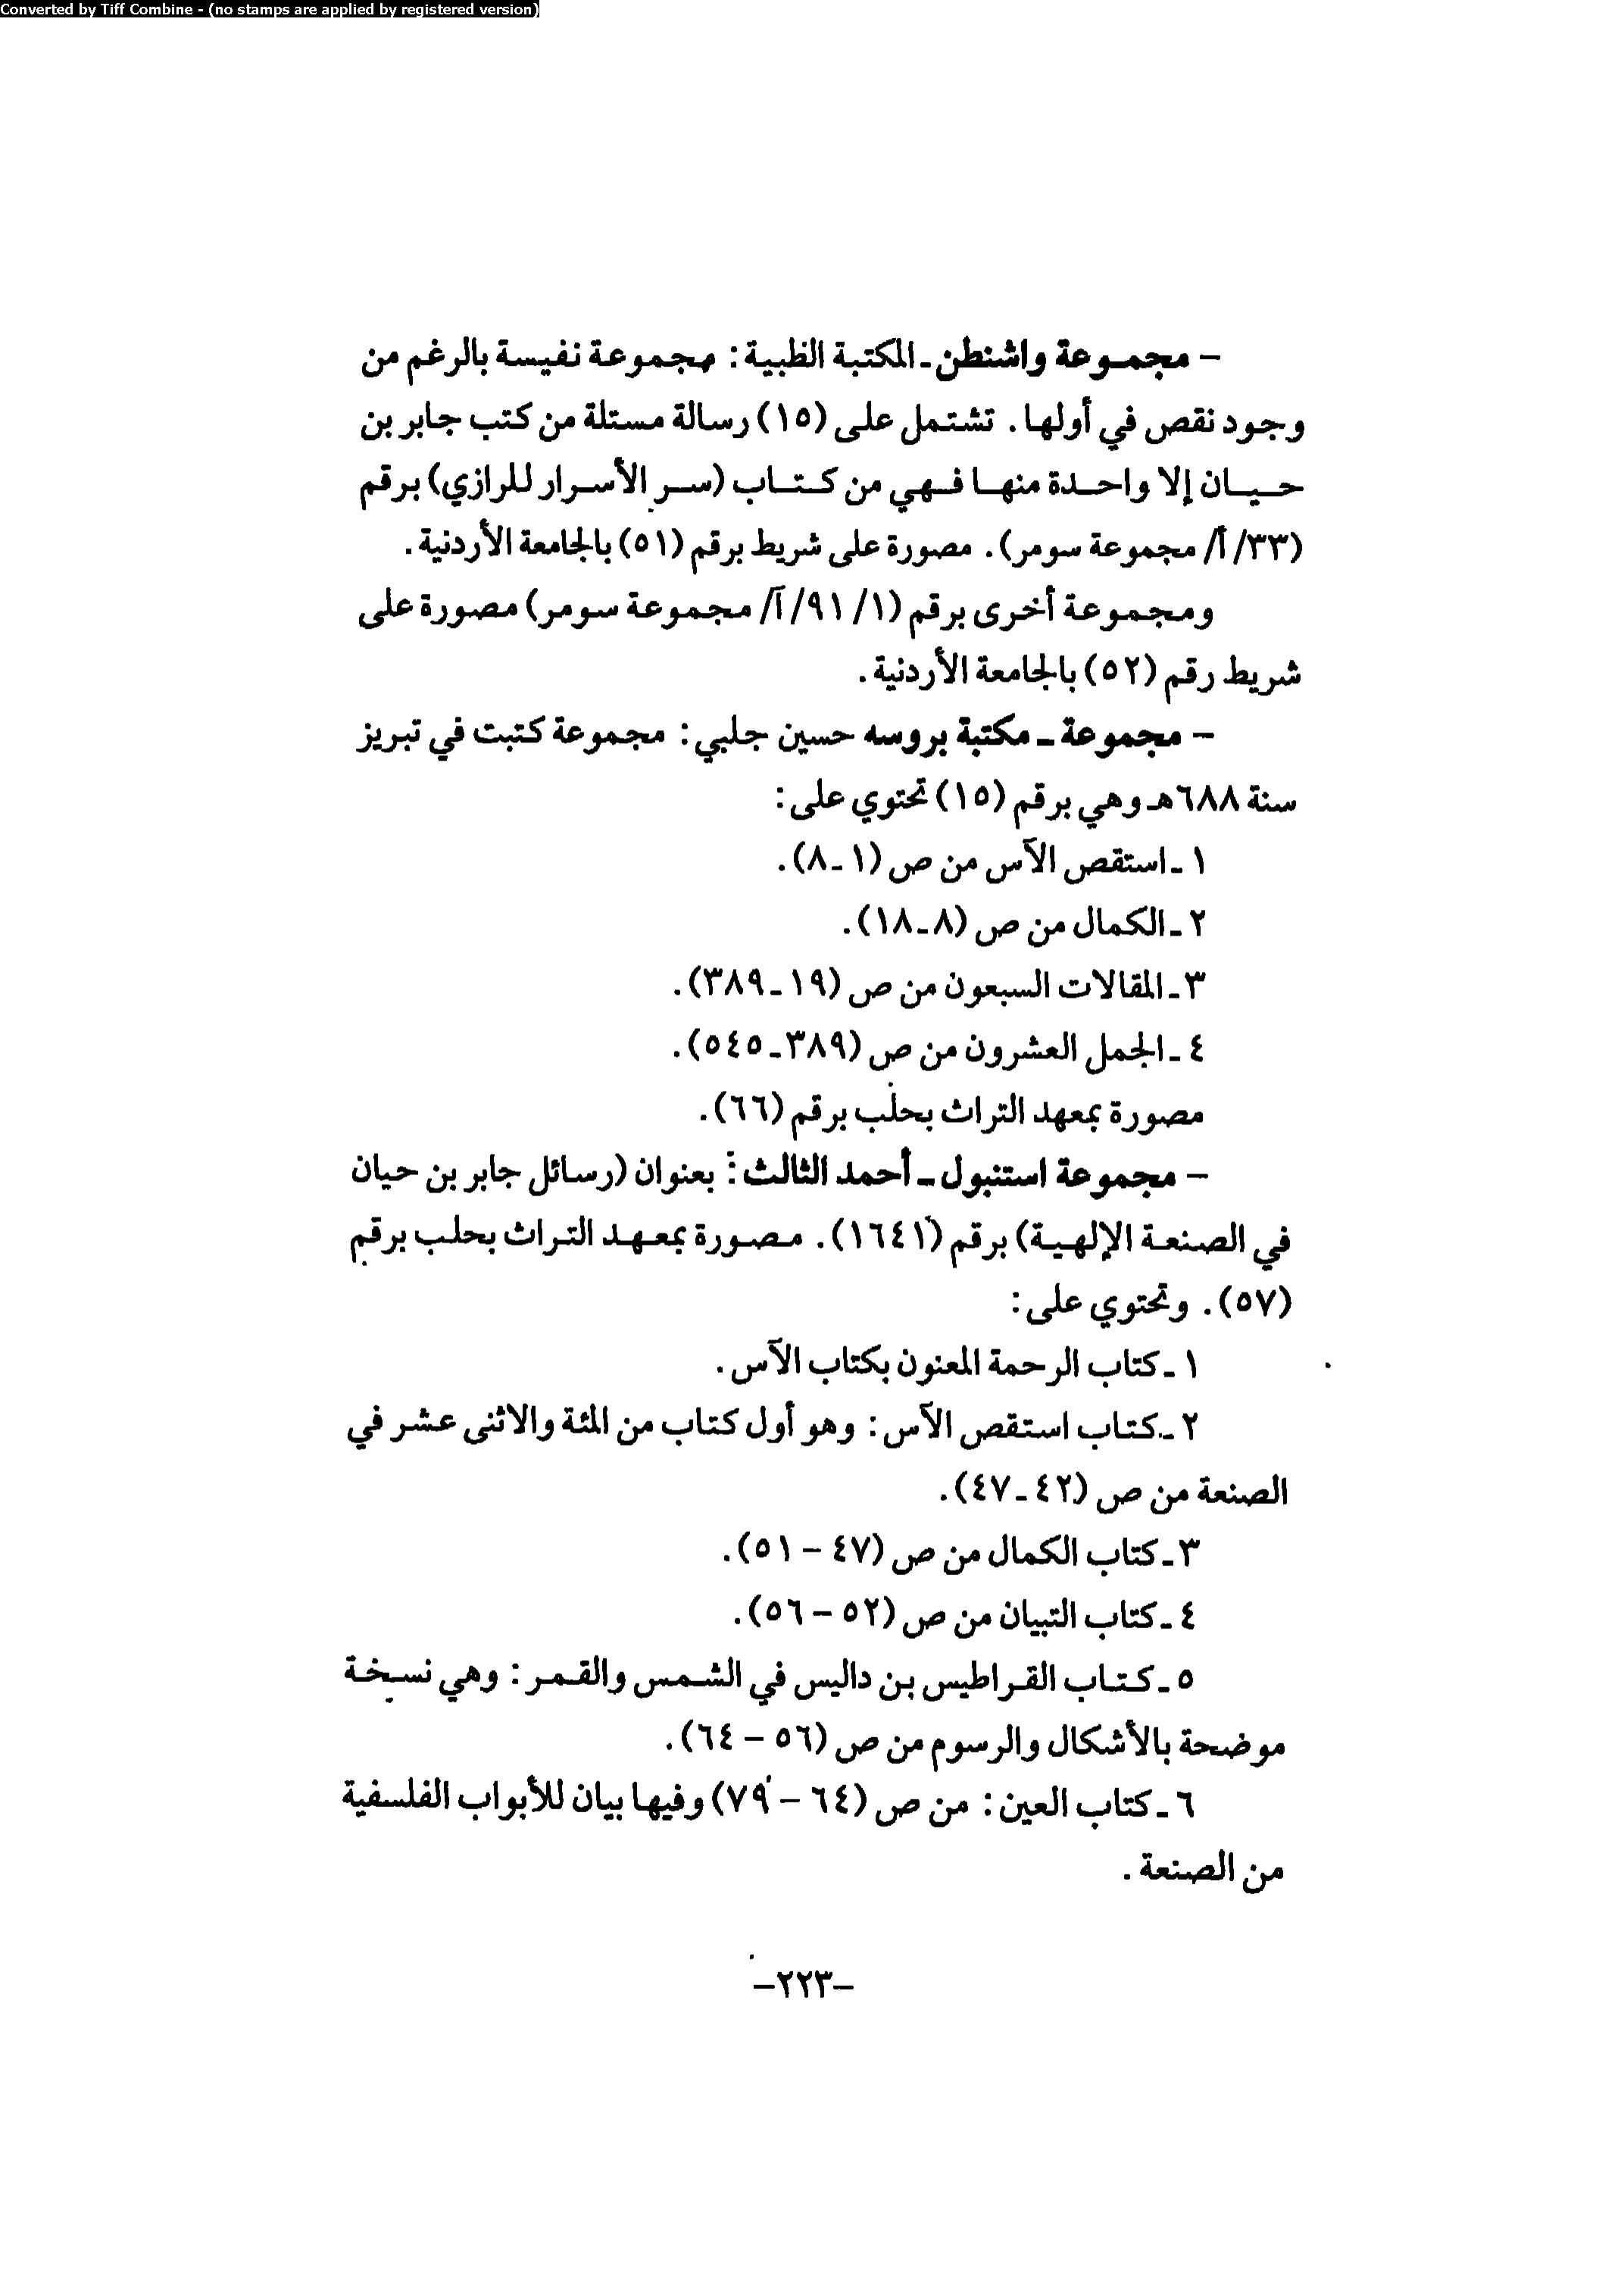 Converted by Tiff Combine - (no stamps are applied by registered version)
– مجموعة واشنطن ـ المكتبة الطبية: مجموعة نفيسة بالرغم من
وجود نقص في أولها. تشتمل على (١٥) رسالة مستلة من كتب جابر بن
حيان إلا واحدة منها فهي من كتاب (سر الأسرار للرازي) برقم
(٣٣/ أ/ مجموعة سومر). مصورة على شريط برقم (٥١) بالجامعة الأردنية.
ومجموعة أخرى برقم (١/ ٩١/ آ/ مجموعة سومر) مصورة على
شريط رقم (٥٢) بالجامعة الأردنية.
– مجموعة ـ مكتبة بروسه حسين جلبي: مجموعة كتبت في تبريز
سنة ٦٨٨هـ وهي برقم (١٥) تحتوي على:
١ ـ استقص الآس من ص (١ـ٨).
٢ ـ الكمال من ص (٨ـ١٨).
٣ـ المقالات السبعون من ص (١٩ـ٣٨٩).
٤ ـ الجمل العشرون من ص (٣٨٩ـ٥٤٥).
مصورة بمعهد التراث بحلب برقم (٦٦).
– مجموعة استنبول ـ أحمد الثالث: بعنوان (رسائل جابر بن حيان
في الصنعة الإلهية) برقم (١٦٤١). مصورة بمعهد التراث بحلب برقم
(٥٧). وتحتوي على:
١ ـ كتاب الرحمة المعنون بكتاب الآس.
٢ ـ كتاب استقص الآس: وهو أول كتاب من المئة والاثنى عشر في
الصنعة من ص (٤٢ـ٤٧).
٣ـ كتاب الكمال من ص (٤٧ – ٥١).
٤ ـ كتاب التبيان من ص (٥٢ – ٥٦).
٥ ـ كتاب القراطيس بن داليس في الشمس والقمر: وهي نسخة
موضحة بالأشكال والرسوم من ص (٥٦ – ٦٤).
٦ ـ كتاب العين: من ص (٦٤ – ٧٩) وفيها بيان للأبواب الفلسفية
من الصنعة.
–٢٢٣–